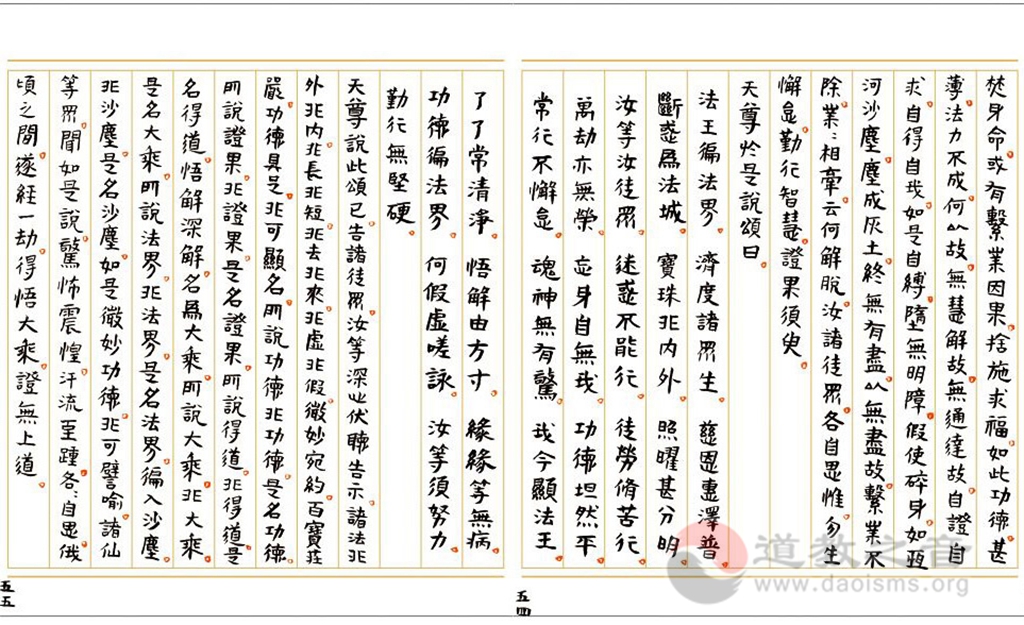 焚身命或有繫業因果捨施求福如此功德甚
薄法力不成何以故無慧解故無通達故自證自
求自得自我如是自縛墮無明障假使碎身如恆
河沙塵塵成灰土終無有盡以無盡故繫業不
除業業相牽云何解脫汝諸徒眾各自思惟勿生
懈怠勤行智慧證果須臾
天尊於是說頌曰
法王徧法界 濟度諸眾生 慈恩惠澤普
斷惑為法城 寶珠非內外 照曜甚分明
汝等汝徒眾 迷惑不能行 徒勞脩苦行
萬劫亦無榮 忘身自無我 功德坦然平
常行不懈怠 魂神無有驚 我今顯法王
五四
了了常清淨 悟解由方寸 緣緣等無病
功德徧法界 何假虛嗟詠 汝等須努力
勤行無堅硬
天尊說此頌已告諸徒眾汝等深心伏聽告示諸法非
外非內非長非短非去非來非虛非假微妙宛約百寶莊
嚴功德具足非可顯名所說功德非功德是名功德
所說證果非證果是名證果所說得道非得道是
名得道悟解深解名為大乘所說大乘非大乘
是名大乘所說法界非法界是名法界徧入沙塵
非沙塵是名沙塵如是微妙功德非可譬喻諸仙
等眾聞如是說驚怖震惶汗流至踵各各自思俄
頃之間遂經一劫得悟大乘證無上道
五五
道教之音
www.daoisms.org